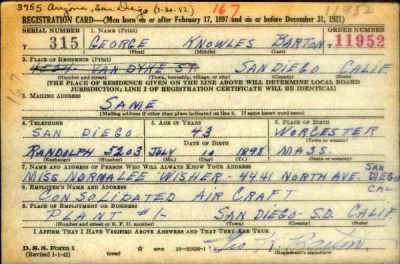 3955 Arizona, San Diego (1-30-42) 167 11952
REGISTRATION CARD—(Men born on or after February 17, 1897 and on or before December 31, 1921)
SERIAL NUMBER 1. NAME (Print) ORDER NUMBER
315 GEORGE KNOWLES BARTON 11952
(First) (Middle) (Last)
2. PLACE OF RESIDENCE (Print)
4534 VAN DYKE ST. SAN DIEGO CALIF
(Number and street) (Town, township, village, or city) (County) (State)
[THE PLACE OF RESIDENCE GIVEN ON THE LINE ABOVE WILL DETERMINE LOCAL BOARD
JURISDICTION; LINE 2 OF REGISTRATION CERTIFICATE WILL BE IDENTICAL]
3. MAILING ADDRESS
SAME
[Mailing address if other than place indicated on line 2. If same insert word same]
4. TELEPHONE 5. AGE IN YEARS 6. PLACE OF BIRTH
SAN DIEGO 43 WORCESTER
DATE OF BIRTH (Town or county)
RANDOLPH 5203 JULY 10 1898 MASS.
(Exchange) (Number) (Mo.) (Day) (Yr.) (State or country)
7. NAME AND ADDRESS OF PERSON WHO WILL ALWAYS KNOW YOUR ADDRESS SAN
MISS NORMALEE WISHER - 4441 NORTH AVE. DIEGO
8. EMPLOYER'S NAME AND ADDRESS CAL
CONSOLIDATED AIR CRAFT
9. PLACE OF EMPLOYMENT OR BUSINESS
PLANT #1- SAN DIEGO - S.D. CALIF
(Number and street or R. F. D. number) (Town) (County) (State)
I AFFIRM THAT I HAVE VERIFIED ABOVE ANSWERS AND THAT THEY ARE TRUE.
D. S. S. Form 1 Geo. K. Barton
(Revised 1-1-42) (Registrant's signature)